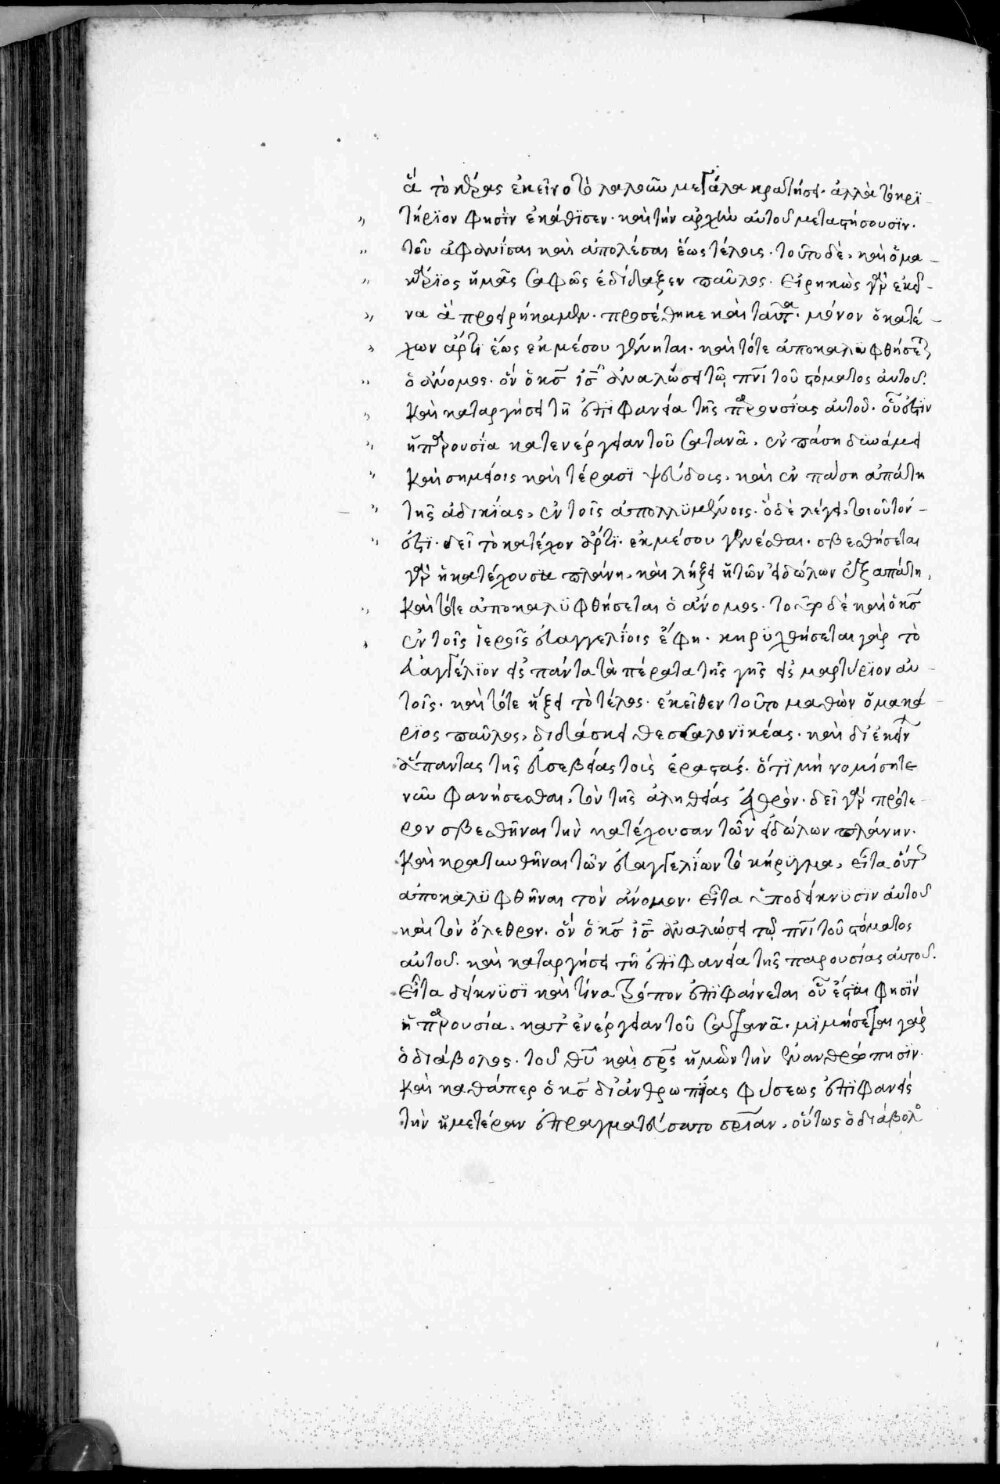 ἃ τὸ κέρας ἐκεῖνο τὸ λαλοῦν μεγάλα κρατήσει· ἀλλὰ τὸ κρϊ-
τήριον φησὶν ἐκάθισεν· καὶ τὴν ἀρχὴν αὐτοῦ μεταστήσουσϊν·
τοῦ ἀφανίσαι καὶ ἀπολέσαι ἕως τέλους· τοῦτο δὲ, καὶ ὁ μα-
κάριος ἡμᾶς σαφῶς ἐδίδαξεν παῦλος· εἰρηκὼς γὰρ ἐκεῖ-
να ἃ προειρήκαμεν· προσέθηκε καὶ ταῦτα· μόνον ὁ κατέ-
χων ἄρτι ἕως ἐκ μέσου γένηται· καὶ τότε ἀποκαλυφθήσεται
ὁ ἄνομος· ὃν ὁ κς ις ἀναλώσει τῷ πνι τοῦ στόματος αὐτοῦ·
καὶ καταργήσει τῇ ἐπιφανεία τῆς παρουσίας αὐτοῦ· οὗ ἐστὶν
ἡ παρουσία κατενέργειαν τοῦ σατανᾶ, ἐν πάση δυνάμει
καὶ σημείοις καὶ τέρασϊ ψεύδους, καὶ ἐν πάση ἀπάτη
τῆς ἀδικίας, ἐν τοῖς ἀπολλϋμένοις· ὃ δὲ λέγει, τοιοῦτόν-
ἐστϊ· δεῖ τὸ κατέχον ἄρτι· ἐκ μέσου γενέσθαι· σβεσθήσεται
γὰρ ἡ κατέχουσα πλάνη, καὶ λήξει ἡ τῶν εἰδώλων ἐξαπάτη,
καὶ τότε ἀποκαλϋφθήσεται ὁ ἄνομος· τοῦτο δὲ καὶ ὁ κς
ἐν τοῖς ἱεροῖς εὐαγγελίοις ἔφη· κηρϋχθήσεται γὰρ τὸ
εὐαγγέλϊον εἰς πάντα τὰ πέρατα τῆς γῆς εἰς μαρτύριον αὐ-
τοῖς· καὶ τότε ἥξει τὸ τέλος· ἐκεῖθεν τοῦτο μαθὼν ὁ μακά-
ρϊος παῦλος, διδάσκει θεσσαλονικέας· καὶ δι ἐκείνων
ἅπαντας τῆς εὐσεβείας τοὺς ἐραστάς· ὅτϊ μὴ νομίσητε
νῦν φανήσεσθαι, τὸν τῆς ἀληθείας ἐχθρόν· δεῖ γὰρ πρότε-
ρον σβεσθῆναι τὴν κατέχουσαν τῶν εἰδώλων πλάνην·
καὶ κρατυνθῆναι τῶν εὐαγγελίων τὸ κήρυγμα, εἶτα οὕτως
ἀποκαλϋφθῆναι τὸν ἄνομον· εἶτα ὑποδείκνϋσιν αὐτοῦ
καὶ τὸν ὄλεθρον· ὃν ὁ κς ις ἀναλώσει τῷ πνι τοῦ στόματος
αὐτοῦ· καὶ καταργήσει τῇ ἐπιφανεία τῆς παρουσίας αὐτοῦ·
εἶτα δείκνϋσϊ καὶ τίνα τρόπον ἐπϊφαίνεται οὗ ἔσται φησὶν
ἡ παρουσία, κατ ἐνέργειαν τοῦ σατανᾶ· μϊμήσεται γὰρ
ὁ διάβολος· τοῦ θυ καὶ σρς ἡμῶν τὴν ἐνανθρώπησϊν·
καὶ καθάπερ ὁ κς δι ἀνθρωπείας φύσεως ἐπϊφανεὶς
τὴν ἡμετέραν ἐπραγματεύσατο σρίαν, οὕτως ὁ διάβολος